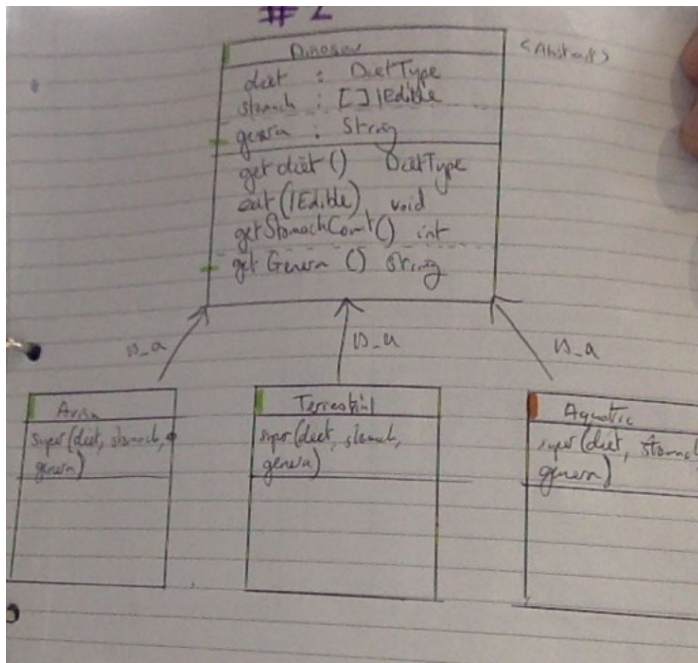 #2
Dinosaur
<Abstract>
diet : DietType
stomach : [] IEdible
genera : String
get diet () DietType
eat (IEdible) void
getStomachCount() int
get Genera () String
is_a
is_a
is_a
Avian
super(diet, stomach,
genera)
Terrestrial
super(diet, stomach,
genera)
Aquatic
super(diet, stomach
genera)